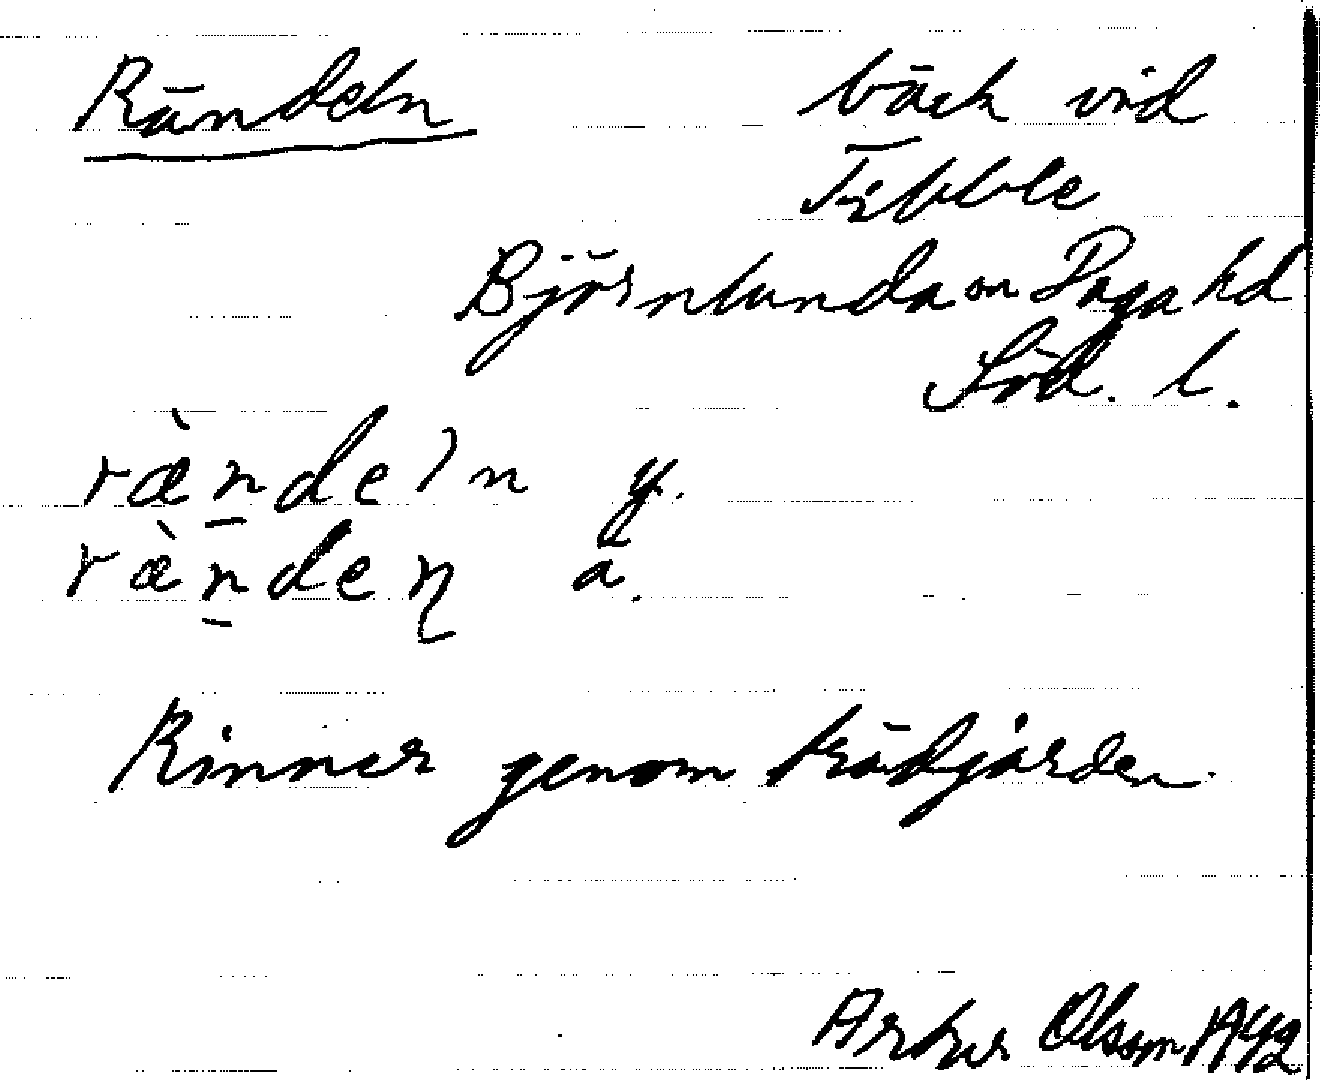 Rändeln bäck vid
Täbble
Björnlunda sn Daga hd
Söd. l.
ræ̀ndeln y.
ræ̀nden ä.
Rinner genom trädgården.
Artur Olsson 1942